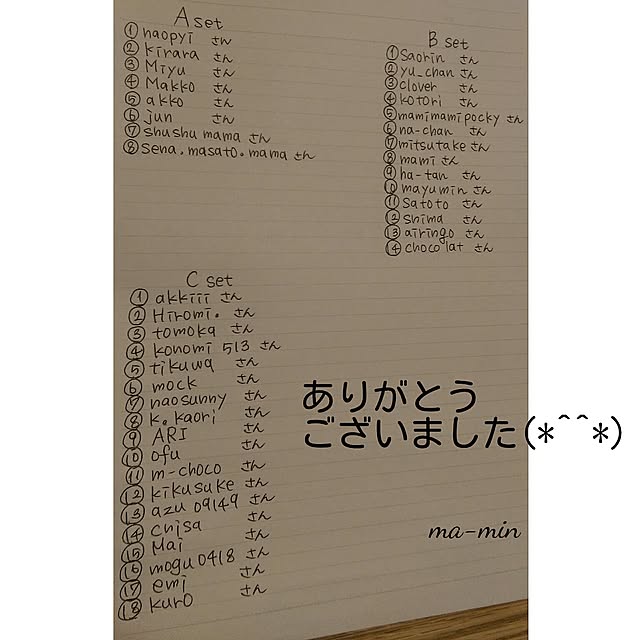 A set
① naopyi さん
② kirara さん
③ Miyu さん
④ Makko さん
⑤ akko さん
⑥ jun さん
⑦ shushu mama さん
⑧ sena.masato.mama さん
B set
① Saorin さん
② yu_chan さん
③ clover さん
④ kotori さん
⑤ mamimamipocky さん
⑥ na-chan さん
⑦ mitsutake さん
⑧ mami さん
⑨ ha-tan さん
⑩ mayumin さん
⑪ satoto さん
⑫ shima さん
⑬ airingo さん
⑭ choco lat さん
C set
① akkiii さん
② Hiromi. さん
③ tomoka さん
④ konomi 513 さん
⑤ tikuwa さん
⑥ mock さん
⑦ naosunny さん
⑧ k.kaori さん
⑨ ARI さん
⑩ ofu さん
⑪ m-choco さん
⑫ kikusuke さん
⑬ azu 09149 さん
⑭ chisa さん
⑮ Mai さん
⑯ mogu0418 さん
⑰ emi さん
⑱ kurO さん
ありがとう
ございました(*^^*)
ma-min